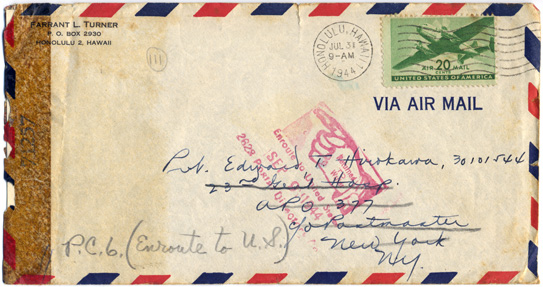 FARRANT L. TURNER
P. O. BOX 2930
HONOLULU 2, HAWAII
(11)
HONOLULU, HAWAII
JUL 31
9-AM
1944
20
AIR MAIL
CENTS
UNITED STATES OF AMERICA
VIA AIR MAIL
Enroute to
SEP 1944
Pvt. Edward T. Hirokawa, 30101544
23rd Gen'l Hosp.
APO 377
c/o Postmaster
New York
N.Y.
P.C.6. (Enroute to U.S.)